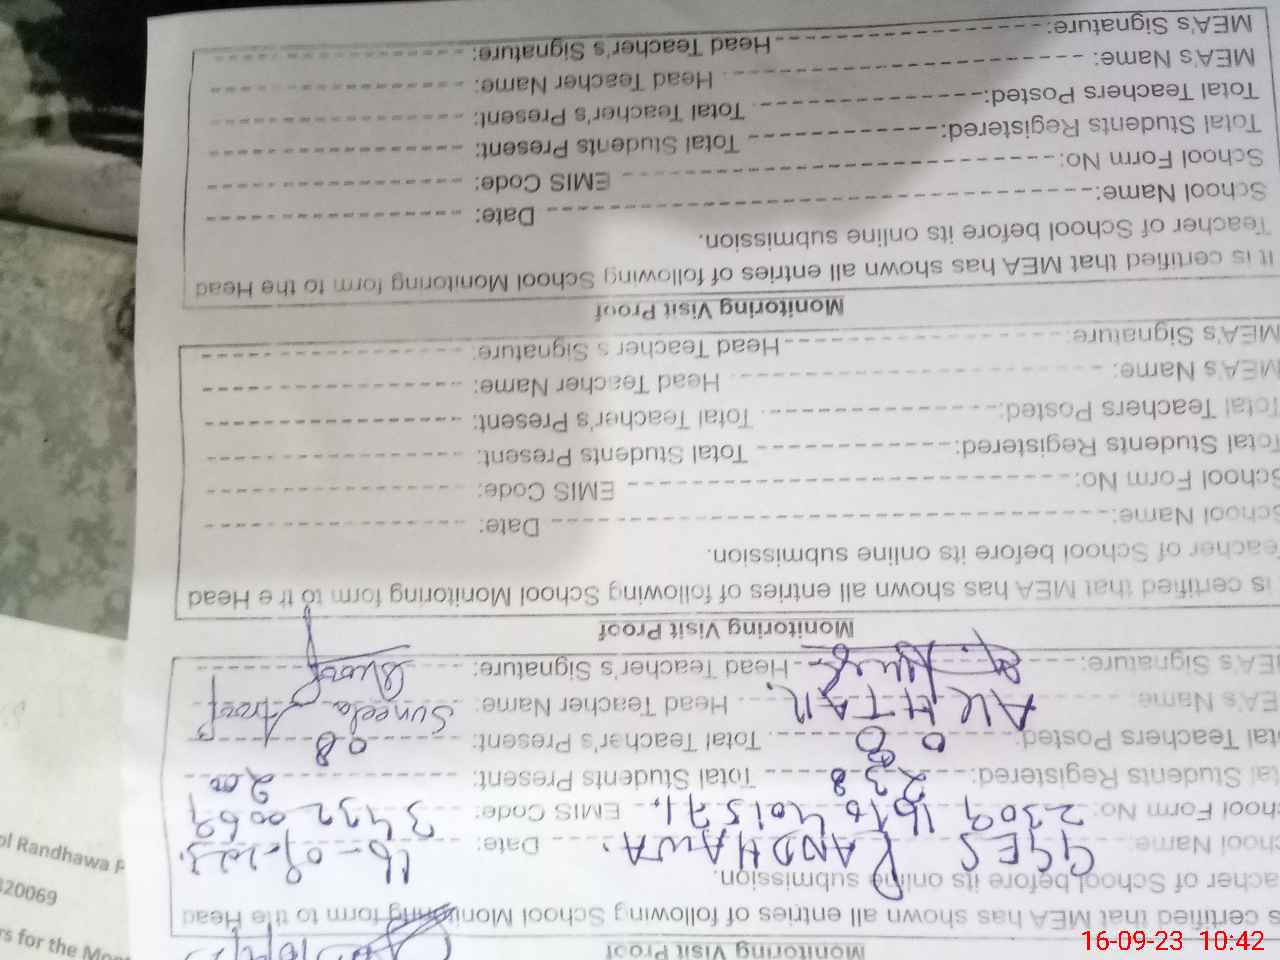 Monitoring Visit Proof
s certified that MEA has shown all entries of following School Monitoring form to the Head
acher of School before its online submission.
chool Name: GGES RANDHAWA. Date: 16-09-2023.
hool Form No: 2309 EMIS Code: 3432 0069
tal Students Registered: 238 Total Students Present: 200
tal Teachers Posted: 08 Total Teacher's Present: 08
EA's Name: AKHTAR Head Teacher Name: Suneela
EA's Signature: Head Teacher's Signature:
Monitoring Visit Proof
is certified that MEA has shown all entries of following School Monitoring School form to the Head
eacher of School before its online submission.
School Name: Date:
School Form No: EMIS Code:
Total Students Registered: Total Students Present:
Total Teachers Posted: Total Teacher's Present:
MEA's Name: Head Teacher Name:
MEA's Signature: Head Teacher's Signature:
Monitoring Visit Proof
It is certified that MEA has shown all entries of following School Monitoring form to the Head
Teacher of School before its online submission.
School Name: Date:
School Form No: EMIS Code:
Total Students Registered: Total Students Present:
Total Teachers Posted: Total Teacher's Present:
MEA's Name: Head Teacher Name:
MEA's Signature: Head Teacher's Signature:
ol Randhawa P
320069
rs for the Mon
16-09-23 10:42